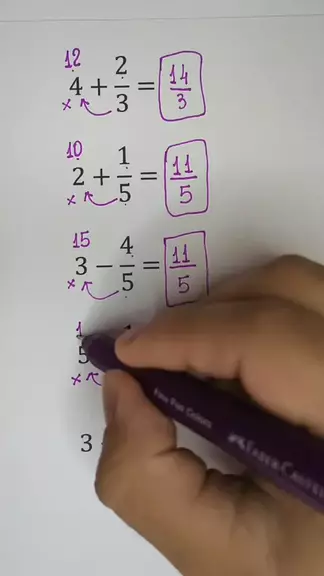 12
4 + 2/3 = 14/3
×
10
2 + 1/5 = 11/5
×
15
3 − 4/5 = 11/5
×
1
5
×
3
Fine Pen Colors
FABER-CASTELL